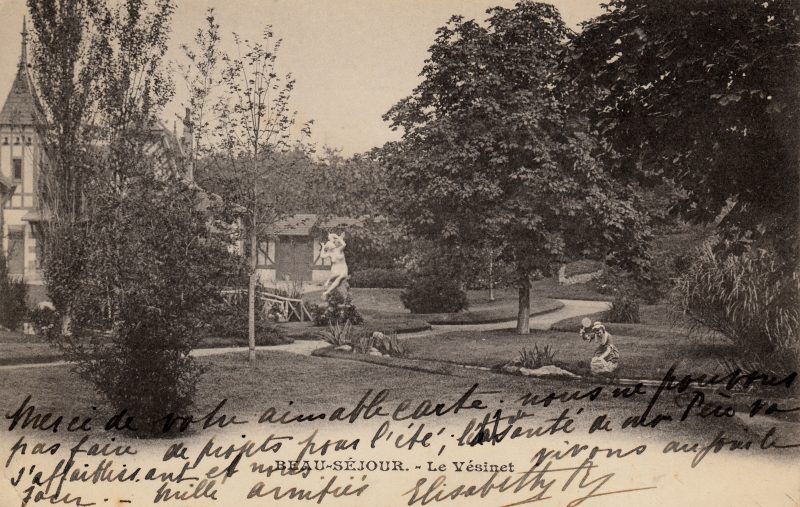 Merci de votre aimable carte. nous ne pouvons
pas faire de projets pour l'été, la santé de mon Père va
s'affaiblissant et nous vivons au jour le
jour. - Mille amitiés Elisabeth
BEAU-SÉJOUR. - Le Vésinet